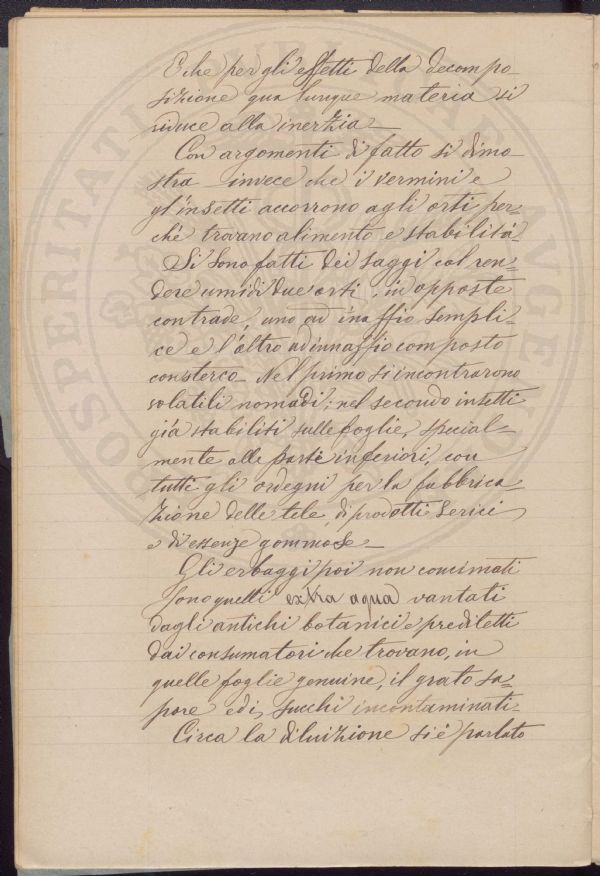 E che per gli effetti della decompo-
sizione qua lunque materia si
riduce alla inerzia —
Con argomenti di fatto si dimo-
stra invece che i vermini e
gl'insetti accorrono agli orti per-
chè trovano alimento e stabilità.
Si sono fatti dei saggi col ren-
dere umidi due orti, in opposte
contrade, uno ad inaffio sempli-
ce e l'altro ad innaffio composto
con sterco. Nel primo si incontrarono
volatili nomadi; nel secondo insetti
già stabiliti sulle foglie, special-
mente alle parti inferiori, con
tutti gli ordegni per la fabbrica-
zione delle tele, di prodotti serici
e di essenze gommose —
Gli erbaggi poi non concimati
sono quelli extra aqua vantati
dagli antichi botanici e prediletti
dai consumatori che trovano, in
quelle foglie genuine, il grato sa-
pore e di, succhi incontaminati.
Circa la diluizione si è parlato
PROSPERITATI PUBLICAE AUGENDAE